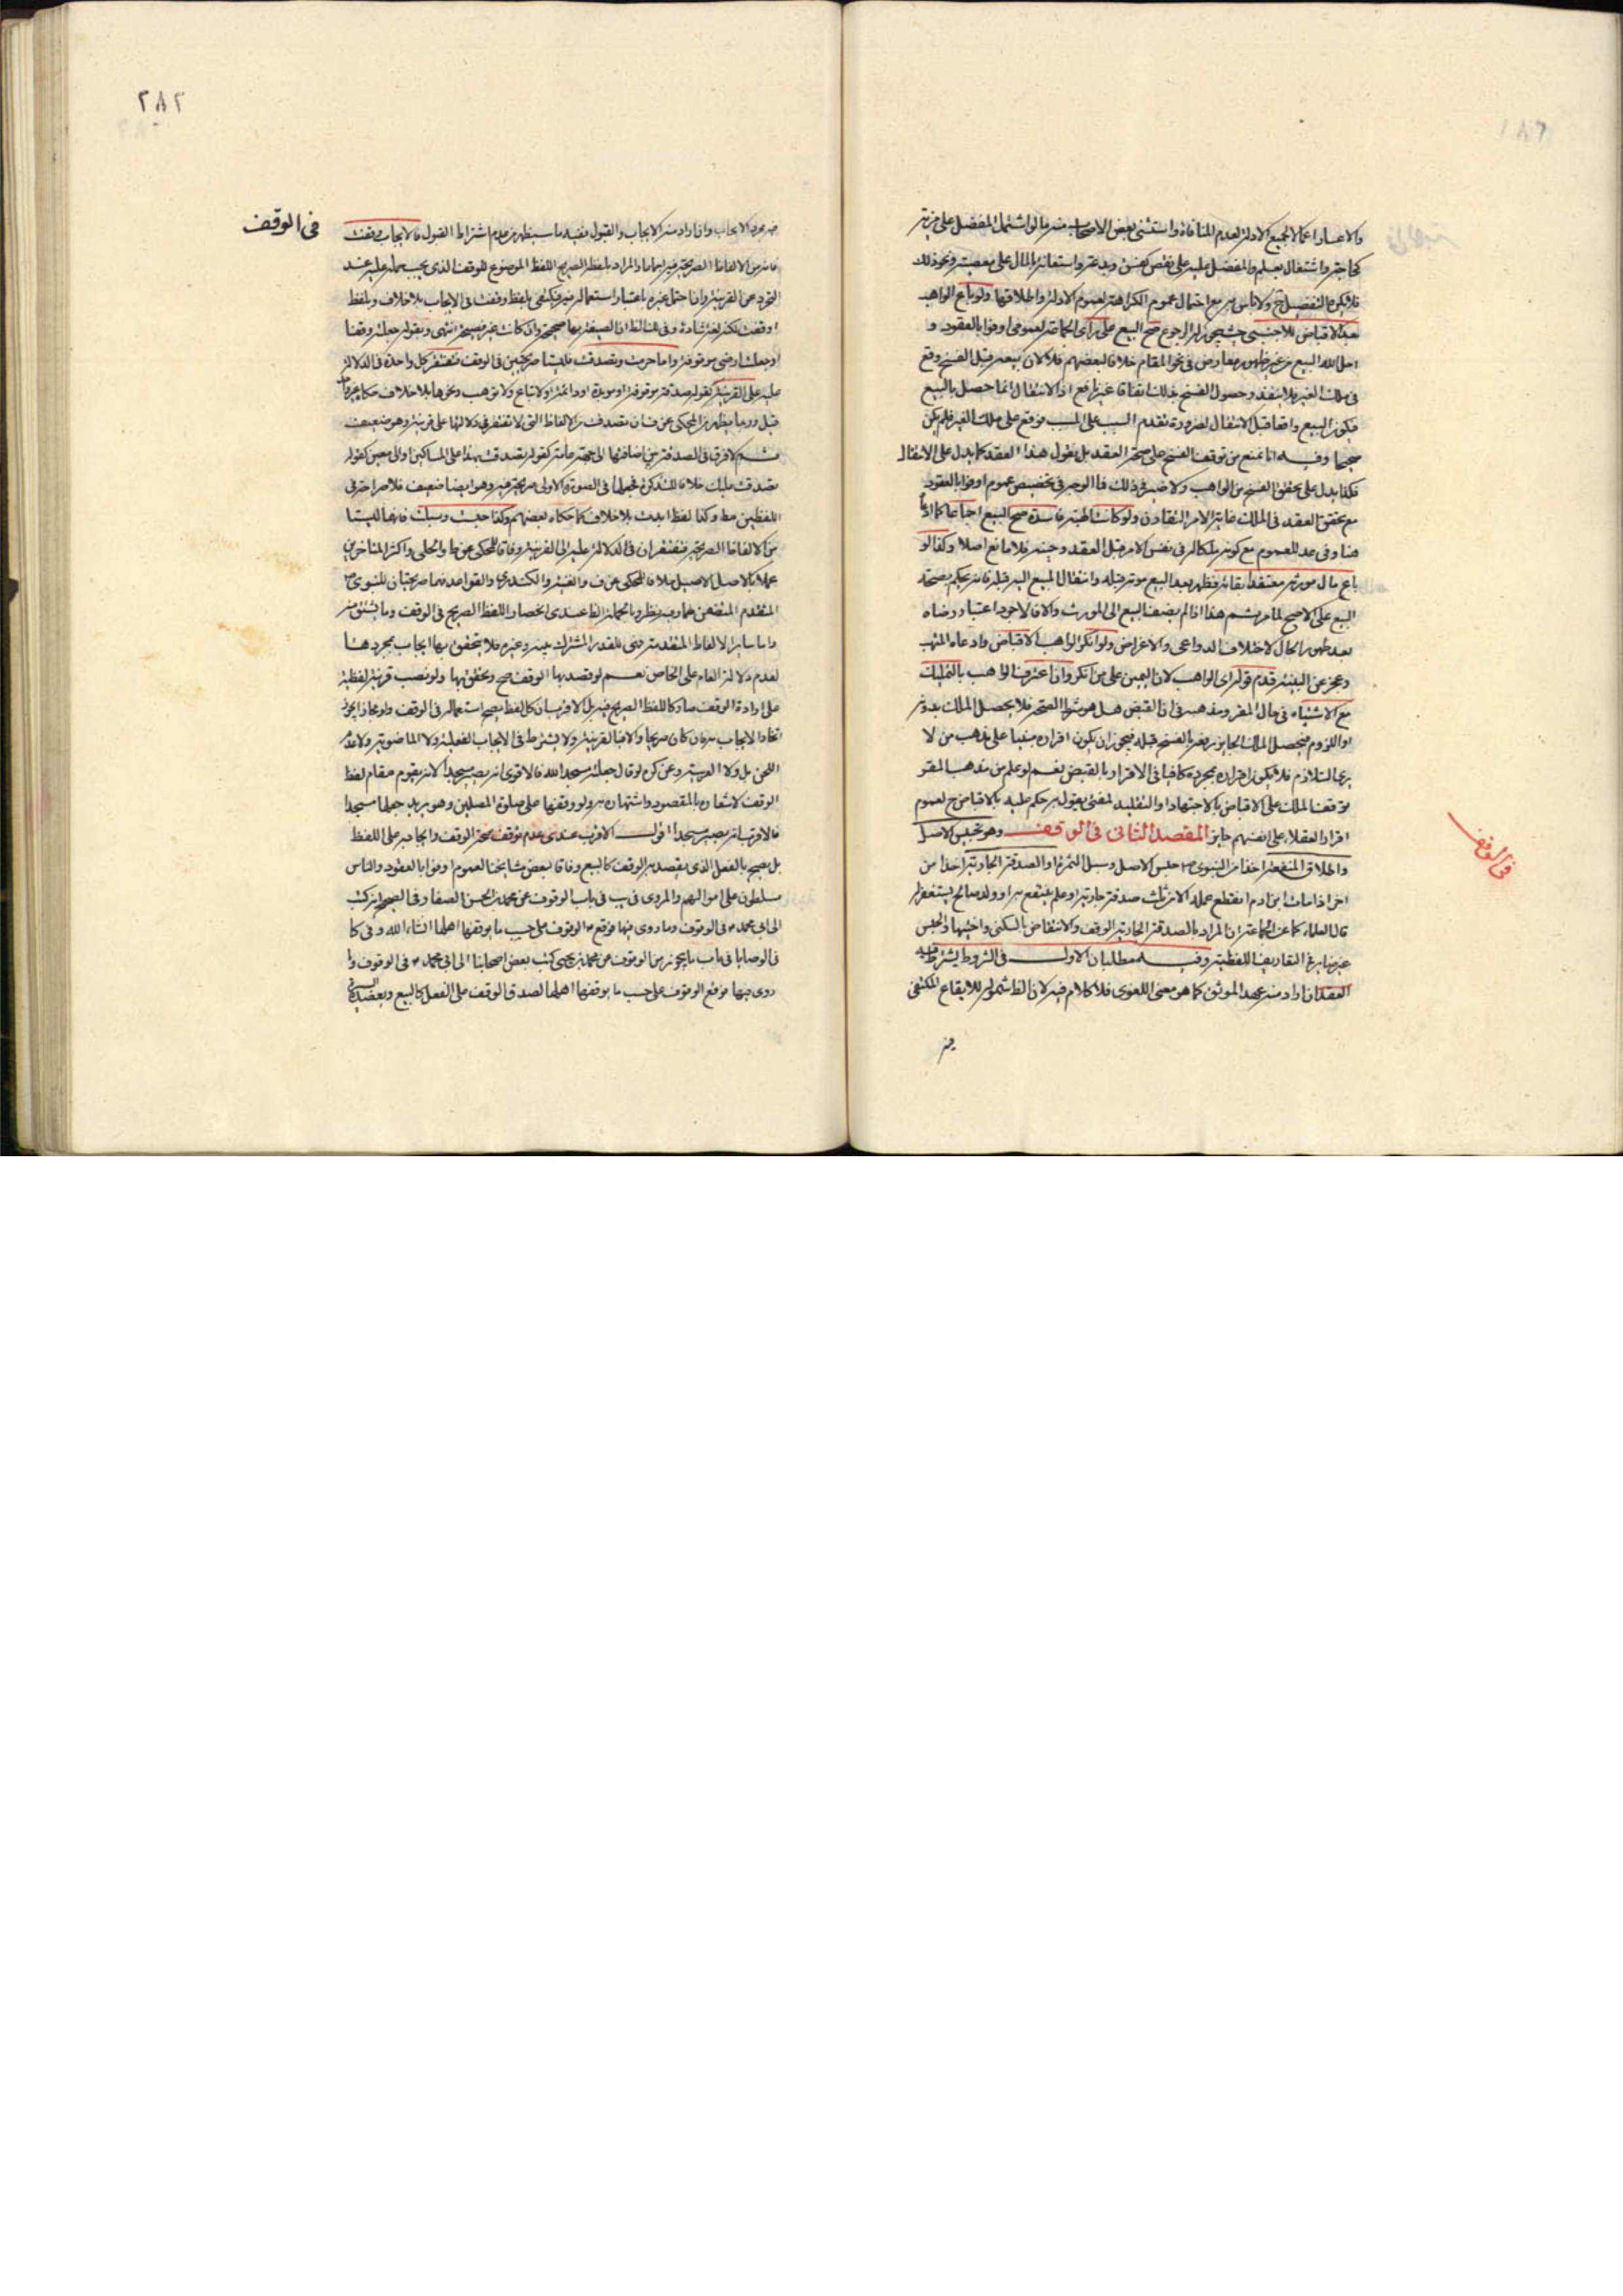 والاعسار اعمالا لجميع الادلة لعدم المنافاة واستثنى بعض الاصحاب منه ما لو اشتمل المفضل على مزية
كحاجة واشتغال بعلم والمفضل عليه على نقص كفسق وبدعة واستعانة بالمال على معصية ونحو ذلك
فلا يكره التفضيل ح ولا باس به مع احتمال عموم الكراهة لعموم الادلة واطلاقها ولو باع الواهب
بعد الاقباض للاجنبى حيث يجوز له الرجوع صح البيع على راى لعموم اوفوا بالعقود و
احل الله البيع من غير ظهور معارض فى نحو المقام خلافا لبعضهم فلا لان بيعه قبل الفسخ وقع
فى ملك الغير فلا ينفذ وحصول الفسخ بذلك اتفاقا غير نافع اذ الانتقال انما حصل بالبيع
فيكون البيع واقعا قبل الانتقال لضرورة تقدم السبب على المسبب فوقع على ملك الغير فلم يكن
صحيحا وفيه انا نمنع من توقف الفسخ على صحة العقد بل نقول هذا العقد كما يدل على الانتقال
فكذا يدل على تحقق الفسخ من الواهب ولا ضير فى ذلك فما الوجه فى تخصيص عموم اوفوا بالعقود
مع تحقق العقد فى الملك غاية الامر التقارن ولو كانت الهبة فاسدة صح البيع اجماعا كما
هنا وفى عد للعموم مع كونه ملكا له فى نفس الامر قبل العقد وحينه فلا مانع اصلا وكذا لو
باع مال مورثه معتقدا بقائه فظهر بعد البيع موته قبله وانتقال المبيع اليه قبله فانه يحكم بصحة
البيع على الاصح لما مر ثم هذا اذا لم يضف البيع الى المورث والا فالاجود اعتبار رضاه
بعد ظهور الحال لاختلاف الدواعى والاغراض ولو انكر الواهب الاقباض وادعاه المتهب
وعجز عن البينة قدم قوله اى الواهب لان اليمين على من انكر وان اعترف الواهب بالتمليك
مع الاشتباه فى حال المقر ومذهبه فى ان القبض هل هو شرط الصحة فلا يحصل الملك بدونه
او اللزوم فيحصل الملك الجايز برفعه بالفسخ قبله فيجوز ان يكون اقراره مبنيا على مذهب من لا
يرى التلازم فلا يكون اقراره بمجرده كافيا فى الاقرار بالقبض نعم لو علم من مذهب المقر
توقف الملك على الاقباض بالاجتهاد او التقليد لمفتى يقول به حكم عليه بالاقباض ح لعموم
اقرار العقلاء على انفسهم جايز المقصد الثانى فى الوقف وهو تحبيس الاصل
واطلاق المنفعة اخذا من النبوى ص حبس الاصل وسبل الثمرة او الصدقة الجارية اخذا من
اخر اذا مات ابن ادم انقطع عمله الا من ثلث صدقة جارية او علم ينتفع به او ولد صالح يستغفر له
قال العلماء كما عن جماعة ان المراد بالصدقة الجارية الوقف والانتقاض بالسكنى واختيها والحبس
غير ضاير فى التعاريف اللفظية وفيه مطلبان الاول فى الشروط يشترط فيه
العقد ان اراد منه عهد الموثق كما هو معنى اللغوى فلا كلام فيه لان الظ شموله للايقاع المكتفى
فيه
فى الوقف
٢٨٢
فى الوقف
فيه بمجرد الايجاب وان اراد منه الايجاب والقبول ففيه ما سيظهر من عدم اشتراط القبول فالايجاب وقفت
فانه من الالفاظ الصريحة فيه اجماعا والمراد باللفظ الصريح اللفظ الموضوع للوقف الذى يجب حمله عليه عند
التجرد عن القرينة وان احتمل غيره باعتبار استعماله فيه فيكتفى بلفظ وقفت فى الايجاب بلا خلاف وبلفظ
اوقفت لكنه لغة شاذة وفى المسالك ان الصيغة بها صحيحة وان كانت غير فصيحة انتهى وبقوله جعلته وقفا
او جعلت ارضى موقوفة واما حرمت وتصدقت فليستا صريحتين فى الوقف فتفتقر كل واحدة فى الدلالة
عليه على القرينة كقوله صدقة موقوفة او مؤبدة او دائمة او لا تباع ولا توهب ونحوها بلا خلاف
قيل وربما يظهر من المحكى عن ف ان تصدقت من الالفاظ التى لا تفتقر فى دلالتها على قرينة وهو ضعيف
ثم لا فرق فى الصدقة بين اضافتها الى جهة عامة كقوله تصدقت بهذا على المساكين او الى معين كقوله
تصدقت عليك خلافا للتذكرة فجعلها فى الصورة الاولى صريحة فيه وهو ايضا ضعيف فلا صراحة فى
اللفظين مط وكذا لفظ ابدت بلا خلاف كما حكاه بعضهم وكذا حبست وسبلت فانهما ليستا
من الالفاظ الصريحة فتفتقران فى الدلالة عليه الى القرينة وفاقا للمحكى عن ط والحلى واكثر المتاخرين
عملا بالاصل الاصيل خلافا للمحكى عن ف والغنية والكندرى والقواعد فهما صريحتان للنبوى ص
المتقدم المتضمن لهما وفيه نظر وبالجملة الظ عندى انحصار اللفظ الصريح فى الوقف وما يشتق منه
واما ساير الالفاظ المتقدمة فهى للقدر المشترك بينه وغيره فلا يتحقق بها ايجاب بمجردها
لعدم دلالة العام على الخاص نعم لو قصد بها الوقف صح وتحقق بها ولو نصب قرينة لفظية
على ارادة الوقف صار كاللفظ الصريح فيه بل الاقرب ان كل لفظ يصح استعماله فى الوقف ولو مجازا يجوز
اتخاذ الايجاب به فان كان صريحا والا فبالقرينة ولا يشترط فى الايجاب الفعلية ولا الماضوية ولا عدم
اللحن بل ولا العربية وعن كرى لو قال جعلته مسجد الله فالاقوى انه يصير مسجدا لانه يقوم مقام لفظ
الوقف لاشعاره بالمقصود واشتهاره به ولو وقفها على صلوة المصلين وهو يريد جعلها مسجدا
فالاقرب انه يصير مسجدا اقول الاقرب عندى عدم توقف صحة الوقف وايجابه على اللفظ
بل يصح بالفعل الذى يقصد به الوقف كالبيع وفاقا لبعض مشايخنا لعموم اوفوا بالعقود والناس
مسلطون على اموالهم والمروى فى يب فى باب الوقوف عن محمد بن الحسن الصفار فى الصحيح انه كتب
الى ابى محمد ع فى الوقوف وما روى فيها فوقع ع الوقوف على حسب ما يوقفها اهلها انشاء الله وفى كا
فى الوصايا فى باب ما يجوز من الوقوف عن محمد بن يحيى كتب بعض اصحابنا الى ابى محمد ع فى الوقوف وما
روى فيها فوقع الوقوف على حسب ما يوقفها اهلها لصدق الوقف على الفعل كالبيع ويعضده